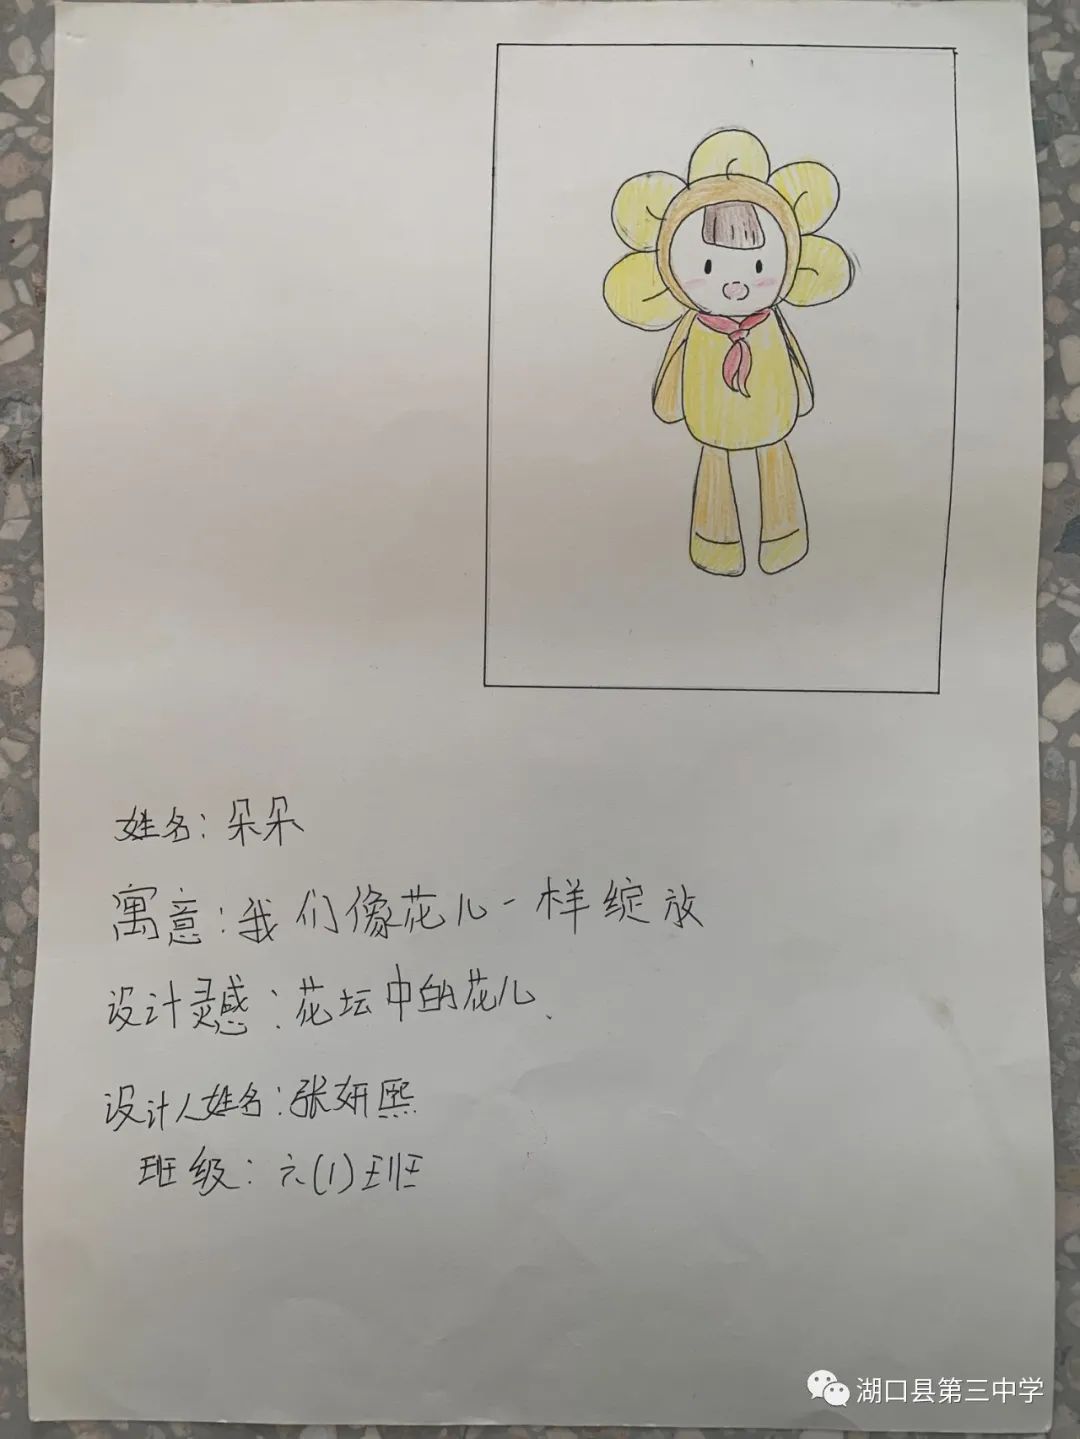 姓名：朵朵
寓意：我们像花儿一样绽放
设计灵感：花坛中的花儿、
设计人姓名：张妍熙
班级：六(1)班
湖口县第三中学